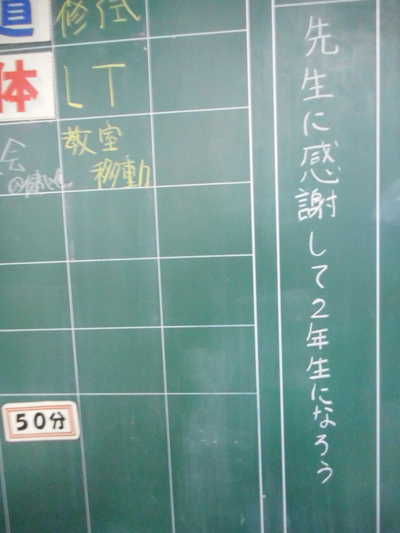 先生に感謝して2年生になろう
道
修式
体
LT
会
教室
移動
50分